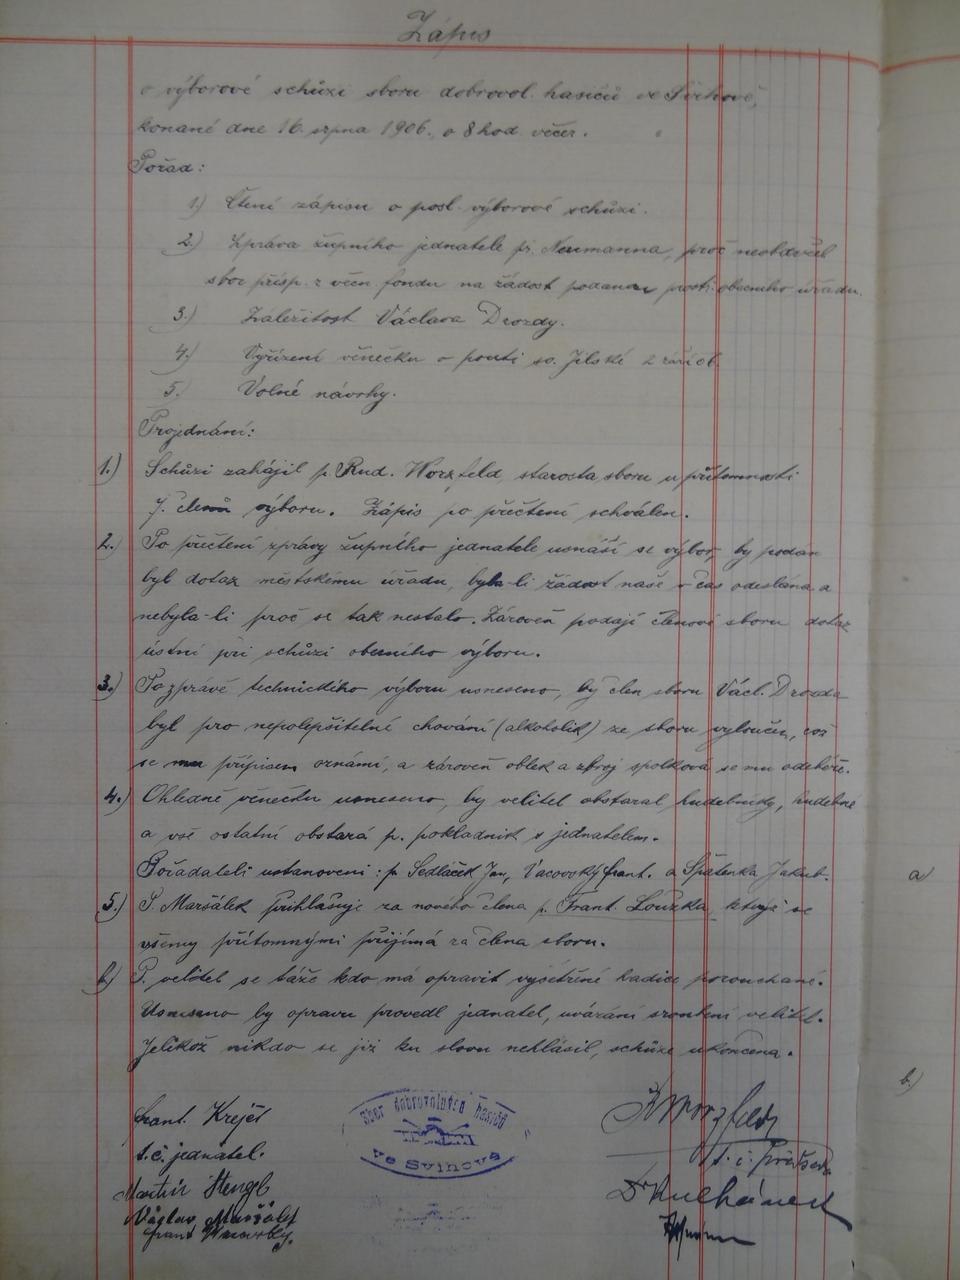 Zápis
o výborové schůzi sboru dobrovol. hasičů ve Svihově,
konané dne 16. srpna 1906., o 8 hod. večer.
Pořad:
1.) Čtení zápisu o posl. výborové schůzi.
2.) Zpráva župního jednatele p. Neumanna, proč neobdržel
sbor přísp. z fondu na žádost podanou prostř. obecního úřadu.
3.) Záležitost Václava Drozdy.
4.) Vyřízení věnečku o pouti sv. Jilské 2 září
5. Volné návrhy.
Projednání:
1.) Schůzi zahájil p. Rud. Worzfeld, starosta sboru u přítomnosti
7. členů výboru. Zápis po přečtení schválen.
2.) Po přečtení zprávy župního jednatele usnáší se výbor, by podán
byl dotaz městskému úřadu, byla-li žádost naše v čas odeslána a
nebyla-li proč se tak nestalo. Zároveň podají členové sboru dotaz
ústní při schůzi obecního výboru.
3.) Po zprávě technického výboru usneseno, by člen sboru Václ. Drozda
byl pro nepolepšitelné chování (alkoholik) ze sboru vyloučen, což
se mu přípisem oznámí, a zároveň oblek a zbroj spolková se mu odebéře.
4.) Ohledně věnečku usneseno, by velitel obstaral hudebníky,
a vše ostatní obstará p. pokladník s jednatelem.
Pořadateli ustanoveni: p. Sedláček Jan, Vacovský Frant. a Špatenka Jakub.
5.) P. Maršálek přihlašuje za nového člena p. Frant. Loužka, který se
všemy přítomnými přijímá za člena sboru.
6.) P. velitel se táže kdo má opravit hadice porouchané.
Usneseno by opravu provedl jednatel, uvázání šroubení velitel.
Jelikož nikdo se již ku slovu nehlásil, schůze ukončena.
a)
b.)
Frant. Krejčí
t.č. jednatel.
Martin Stengl
Václav Maršálek
Frant Vacovský
Sbor dobrovolných hasičů
ve Svihově
R Worzfeld
t. č. předseda
Dr Kulhánek